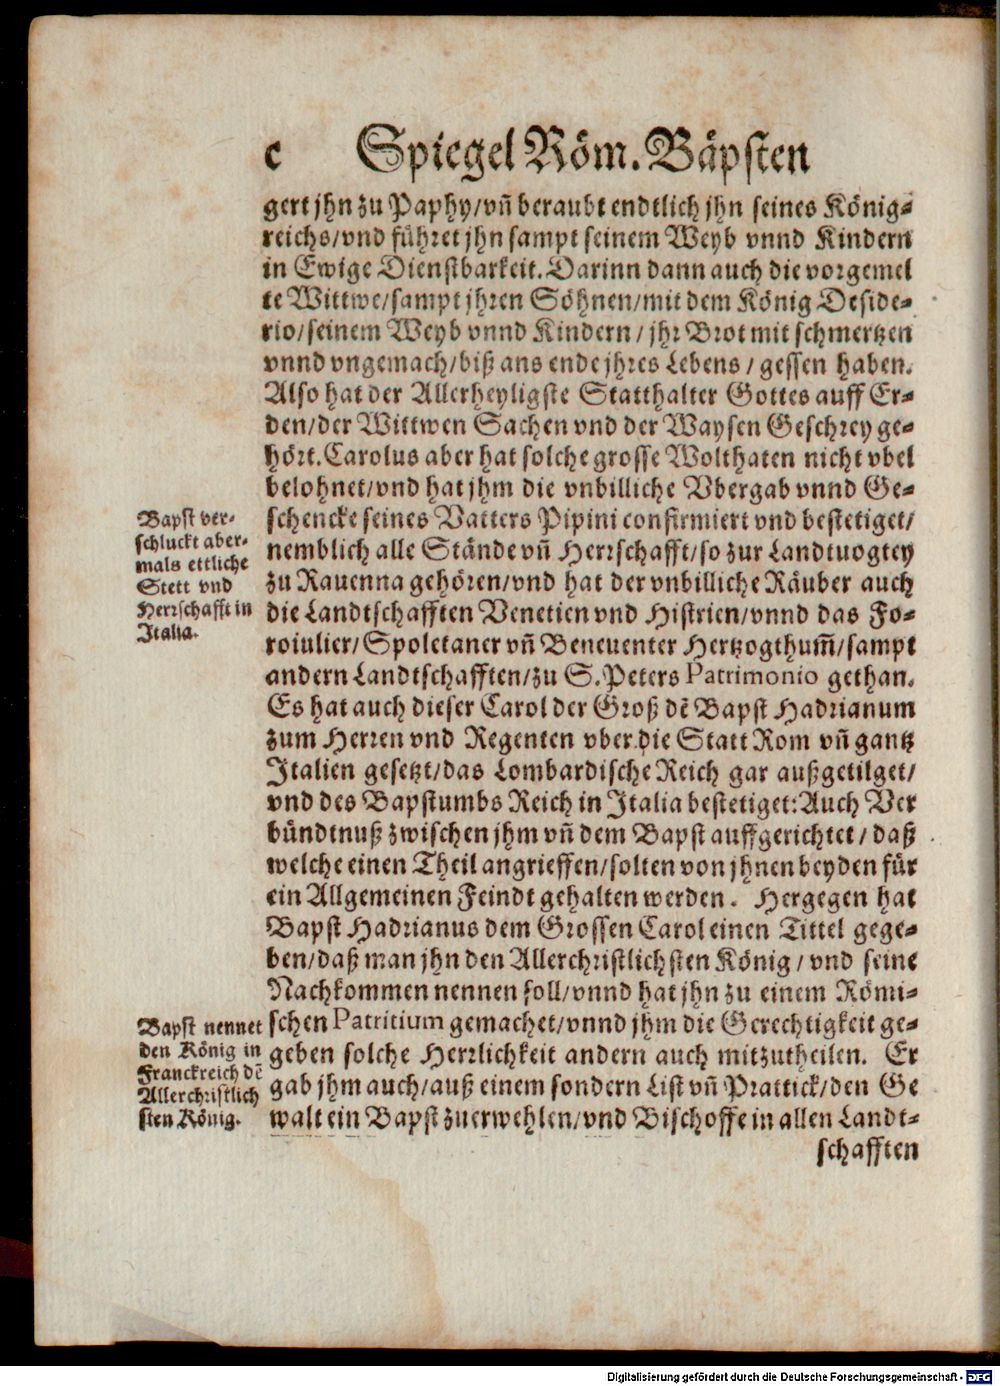 c Spiegel Röm. Bäpsten
gert jhn zu Paphy/vñ beraubt endtlich jhn seines König-
reichs/vnd führet jhn sampt seinem Weyb vnnd Kindern
in Ewige Dienstbarkeit. Darinn dann auch die vorgemel
te Wittwe/sampt jhren Söhnen/mit dem König Deside-
rio/seinem Weyb vnnd Kindern/jhr Brot mit schmertzen
vnnd vngemach/biß ans ende jhres Lebens/gessen haben.
Also hat der Allerheyligste Statthalter Gottes auff Er-
den/der Wittwen Sachen vnd der Waysen Geschrey ge-
hört. Carolus aber hat solche grosse Wolthaten nicht vbel
belohnet/vnd hat jhm die vnbilliche Vbergab vnnd Ge-
schencke seines Vatters Pipini confirmiert vnd bestetiget/
nemblich alle Stände vñ Herrschafft/so zur Landtuogtey
zu Rauenna gehören/vnd hat der vnbilliche Räuber auch
die Landtschafften Venetien vnd Histrien/vnnd das Fo-
roiulier/Spoletaner vñ Beneuenter Hertzogthum̃/sampt
andern Landtschafften/zu S. Peters Patrimonio gethan.
Es hat auch dieser Carol der Groß dẽ Bapst Hadrianum
zum Herren vnd Regenten vber die Statt Rom vñ gantz
Italien gesetzt/das Lombardische Reich gar außgetilget/
vnd des Bapstumbs Reich in Italia bestetiget: Auch Ver
bündtnuß zwischen jhm vñ dem Bapst auffgerichtet/daß
welche einen Theil angrieffen/solten von jhnen beyden für
ein Allgemeinen Feindt gehalten werden. Hergegen hat
Bapst Hadrianus dem Grossen Carol einen Tittel gege-
ben/daß man jhn den Allerchristlichsten König/vnd seine
Nachkommen nennen soll/vnnd hat jhn zu einem Römi-
schen Patritium gemachet/vnnd jhm die Gerechtigkeit ge-
geben solche Herrlichkeit andern auch mitzutheilen. Er
gab jhm auch/auß einem sondern List vñ Prattick/den Ge
walt ein Bapst zuerwehlen/vnd Bischoffe in allen Landt-
schafften
Bapst ver-
schluckt aber-
mals ettliche
Stett vnd
Herrschafft in
Italia.
Bapst nennet
den König in
Franckreich dẽ
Allerchristlich
sten König.
Digitalisierung gefördert durch die Deutsche Forschungsgemeinschaft - DFG